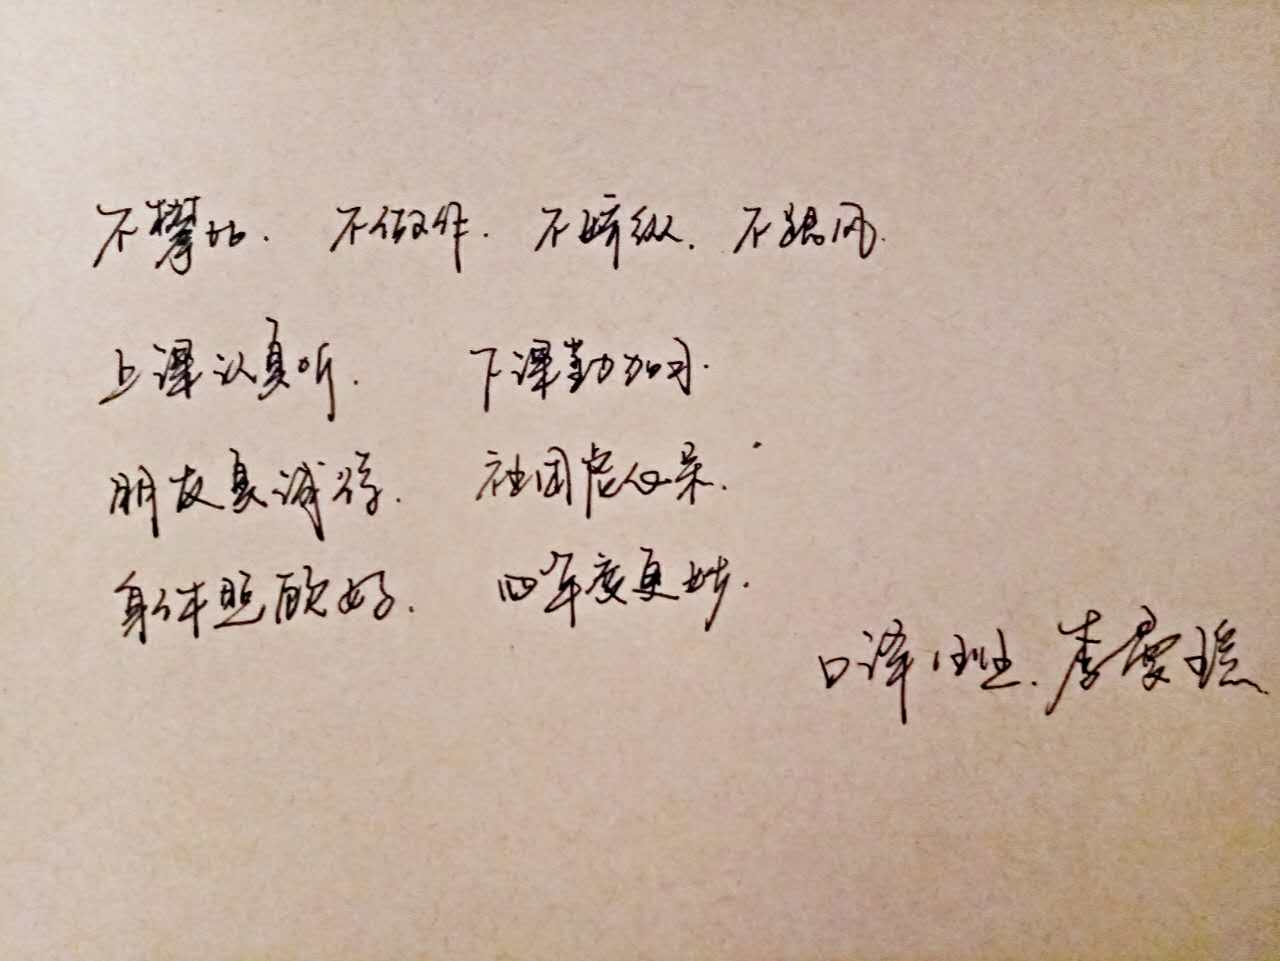 不攀比. 不做作. 不骄纵. 不跟风.
上课认真听. 下课勤加习.
朋友真诚待. 社团尽心呆.
身体照顾好. 四年度更妙.
口译班. 李雯瑶